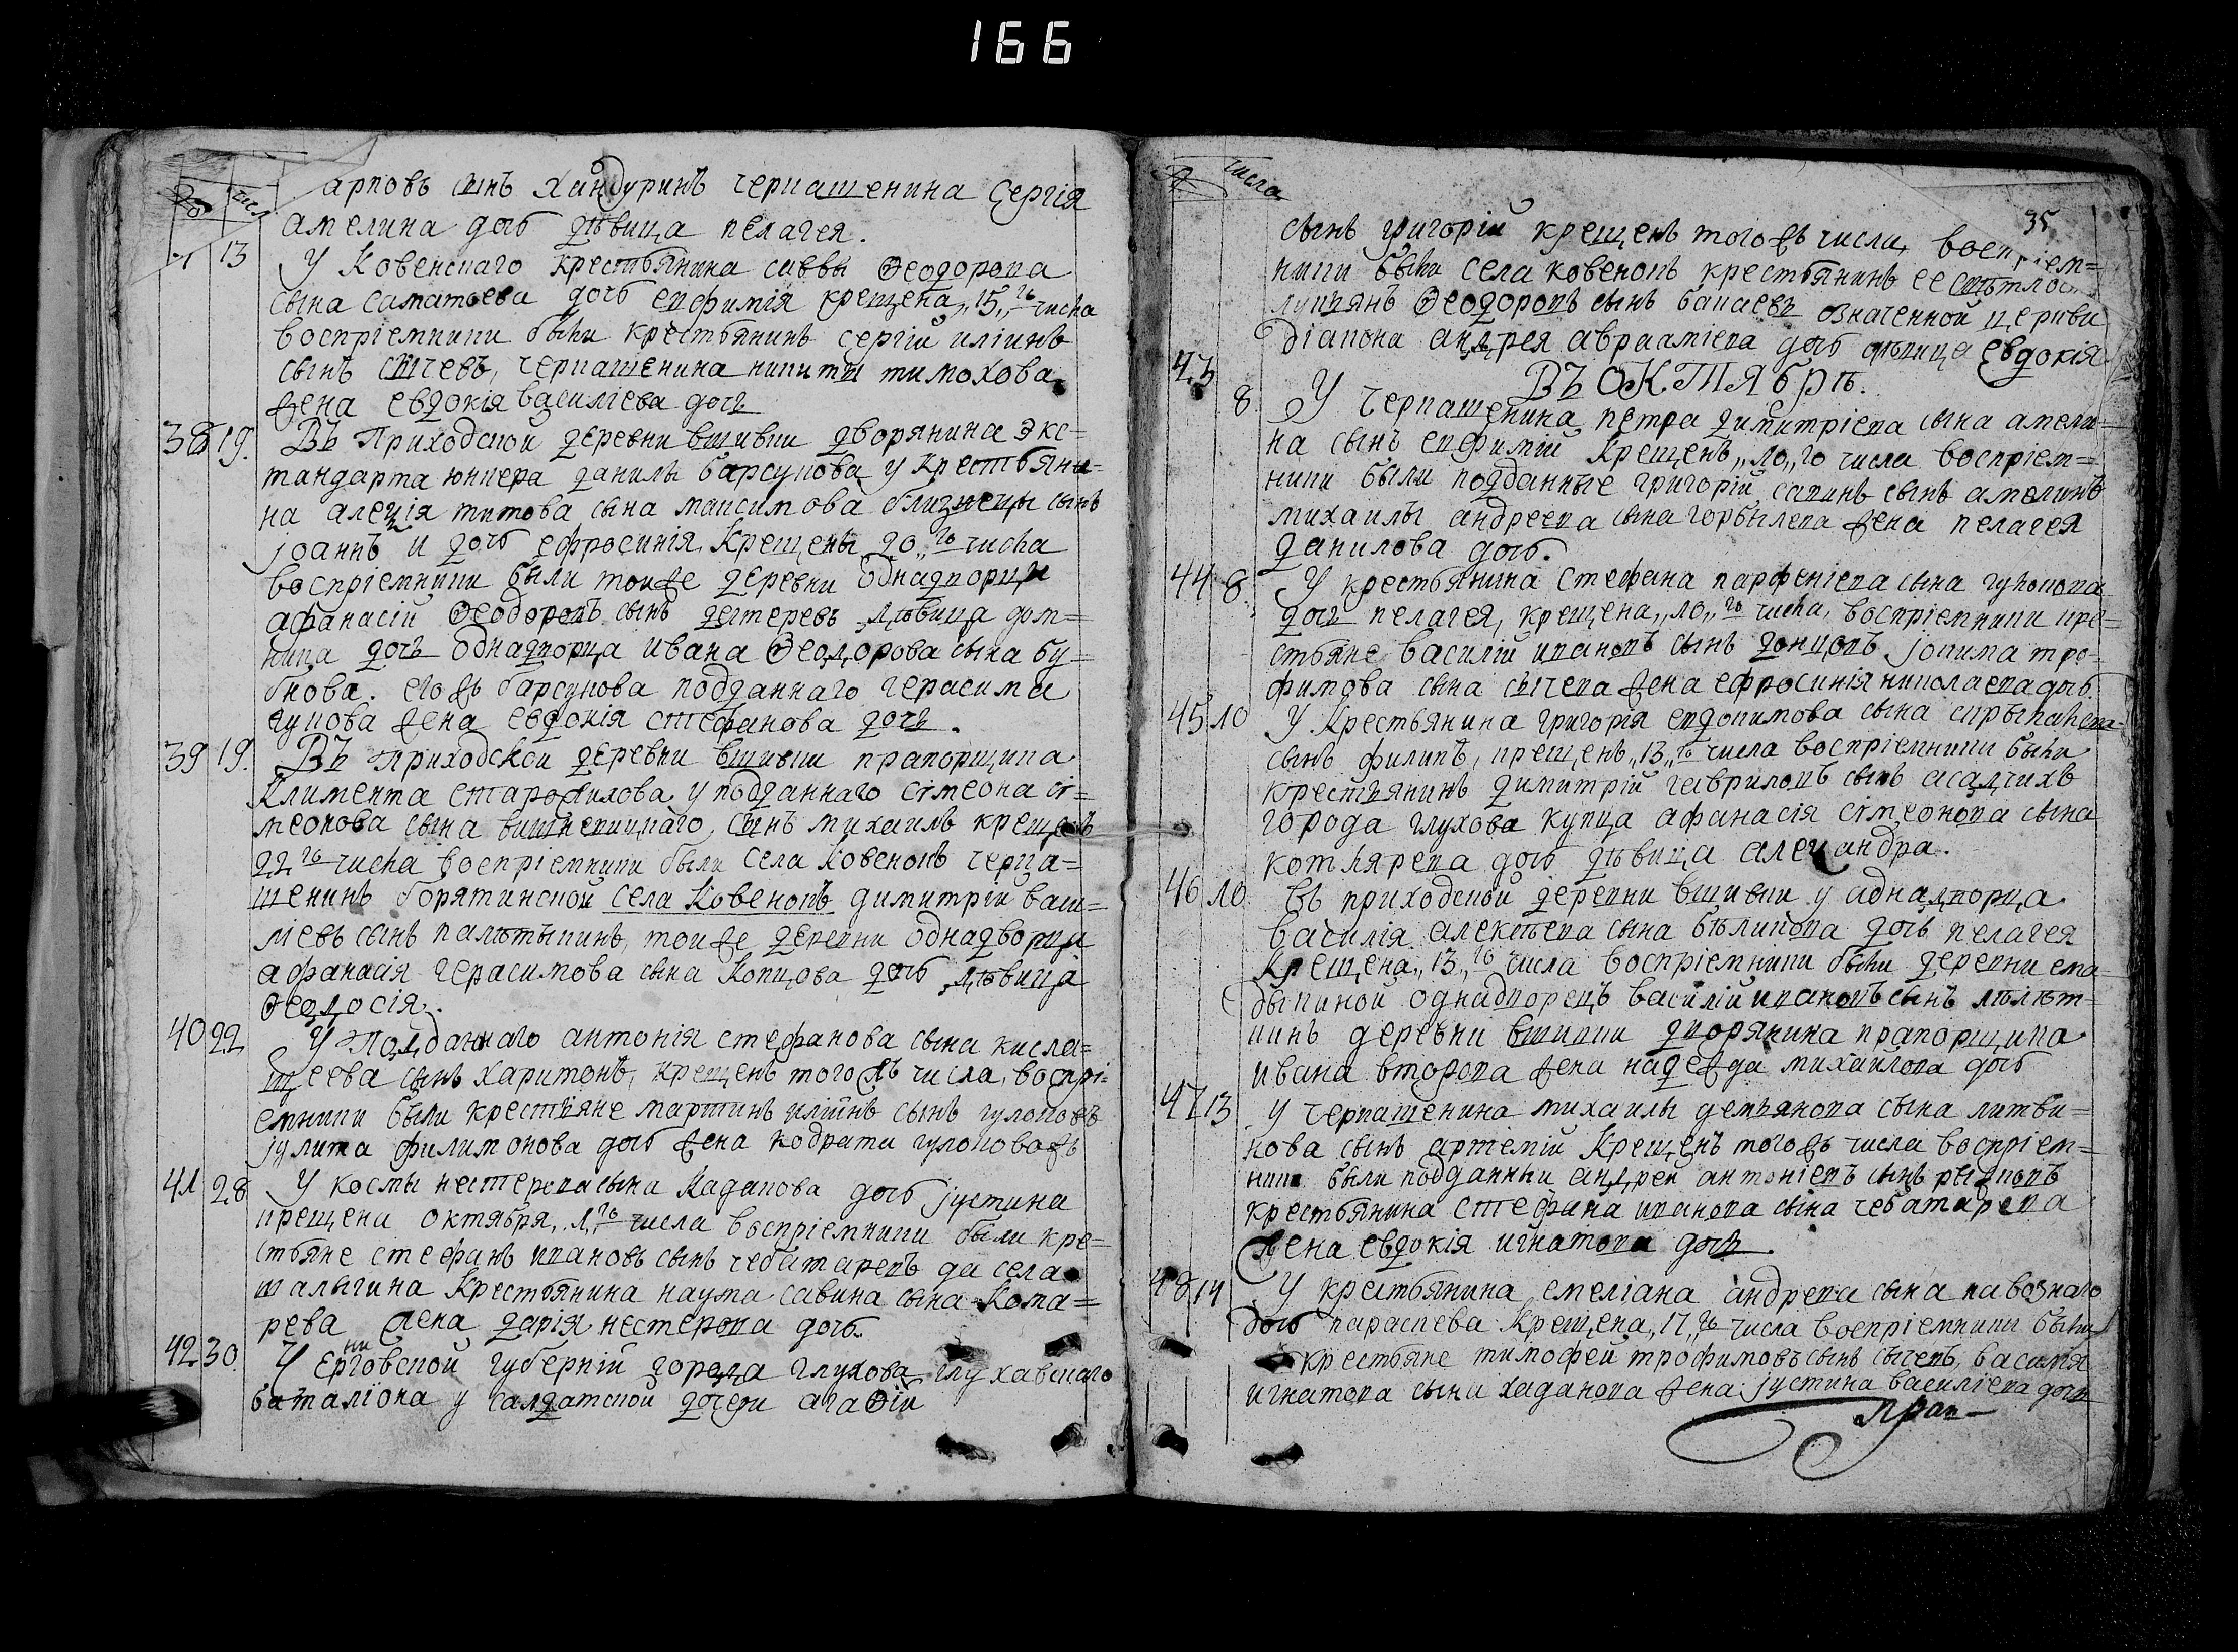 166
числ
арповъ сынъ хандуринъ черкашенина сергія
амелина дочь дѣвица пелагея.
13 У Ковенскаго крестьянина саввы Ѳеодорова
сына саматоева дочь евфимія крещена „15„ го числа
воспріемники были крестьянинъ сергій иліинъ
сынъ сычевъ, черкашенина никиты тимохова
жена евдокія василіева дочь
38 19. Въ Приходской деревни вшивки дворянина экс=
тандарта юнкера данилы барсукова у крестьяни=
на алезія титова сына максимова близнецы сынъ
јоаннъ и дочь ефросинія крещены 20„ го числа
воспріемники были тойже деревни однадворцы
афанасій Ѳеодоровъ сынъ дегтеревъ дѣвица дом=
ника дочь однадворца ивана Ѳеодорова сына бу=
бнова. егожъ барсукова подданнаго герасима
гукова жена евдокія стефанова дочь.
39 19. Въ Приходской деревни вшивки прапорщика
Климента старожилова у подданнаго сімеона сі=
меонова сына вишневицкаго, сынъ михаилъ крещенъ
22 го числа воспріемники были села ковенокъ черка=
шенинъ борятинской села Ковенокъ димитрій васи=
ліевъ сынъ палютыкинъ, тойже деревни однадворца
афанасія герасимова сына Копцова дочь дѣвица
Ѳеодосія.
40 22 У Подданнаго антонія стефанова сына кисла=
щеева сынъ харитонъ, крещенъ тогожъ числа, воспрі=
емники были крестьяне мартинъ иліинъ сынъ гулоковъ
јулита филимонова дочь жена кодрата гулоковажъ
41 28 У космы нестерова сына кадакова дочь јустина
крещена октября „1„ го числа воспріемники были кре=
стьяне стефанъ ивановъ сынъ чебатаревъ да села
шалыгина крестьянина наума савина сына кома=
рева жена дарія нестерова дочь.
42 30. У Ерговской губерніи города глухова глухавскаго
баталіона у салдатской дочери агаѲіи
числа
35
сынъ григорій крещенъ тогожъ числа, воспріем=
ники были села ковенокъ крестьянинъ ее свѣтлости
лукьянъ Ѳеодоровъ сынъ бакаевъ означенной церкви
діакона андрея авраамієва дочь дѣвица евдокія
ВЪ ОКТЯбрѣ.
43 8. У черкашенина петра димитріева сына амели=
на сынъ евфимій крещенъ „10„ го числа воспріем=
ники были подданные григорій савинъ сынъ амелинъ
михаилы андреева сына горбылева жена пелагея
данилова дочь.
44 8. У крестьянина стефана парфеніева сына гулокова
дочь пелагея, крещена „10„ го числа, воспріемники кре=
стьяне василій ивановъ сынъ донцовъ јокима тро=
фимова сына сычева жена ефросинія николаева дочь
45 10 У Крестьянина григорія евдокимова сына скрыпалева
сынъ филипъ, крещенъ „13„ го числа воспріемники были
крестьянинъ димитрій гавриловъ сынъ асадчихъ
города глухова купца афанасія сімеонова сына
котлярева дочь дѣвица алеѯандра.
46 10 Въ приходской деревни вшивки у аднадворца
василія алексѣева сына бѣликова дочь пелагея
крещена „13„ го числа воспріемники были деревни ема=
дыкиной однадворецъ василій ивановъ сынъ
деревни вшивки дворянина прапорщика
ивана второва жена надежда михайлова дочь
47 13 у черкашенина михаилы демьянова сына литви=
нова сынъ артемій Крещенъ тогожъ числа воспріем=
ники были подданныи андрей антоніевъ сынъ рыжковъ
крестьянина стефана иванова сына чебатарева
жена евдокія игнатова дочь.
48 14 У крестьянина емеліана андреева сына навознаго
дочь параскева Крещена „17„ го числа воспріемники были
крестьяне тимофей трофимовъ сынъ сычевъ, василія
игнатова сына хаданова жена јустина василіева дочь